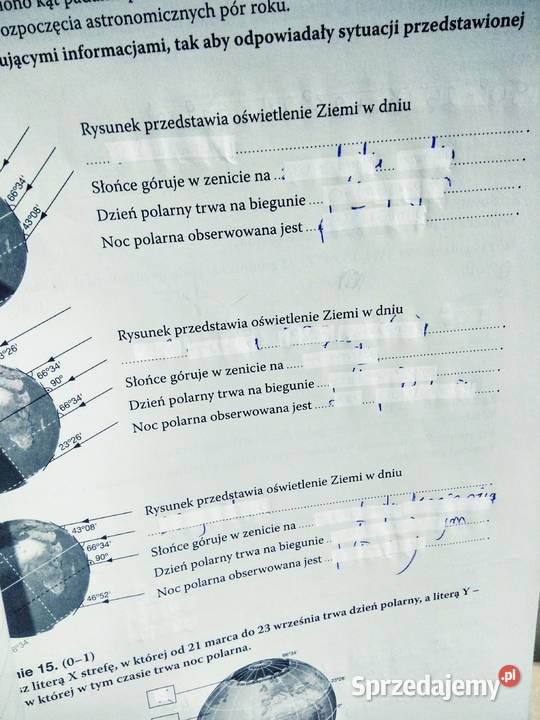 rozpoczęcia astronomicznych pór roku.
ującymi informacjami, tak aby odpowiadały sytuacji przedstawionej
Rysunek przedstawia oświetlenie Ziemi w dniu
66°34'
Słońce góruje w zenicie na
43°08'
Dzień polarny trwa na biegunie
Noc polarna obserwowana jest
Rysunek przedstawia oświetlenie Ziemi w dniu
3°26'
66°34'
90°
Słońce góruje w zenicie na
66°34'
Dzień polarny trwa na biegunie
Noc polarna obserwowana jest
23°26'
Rysunek przedstawia oświetlenie Ziemi w dniu
43°08'
66°34'
Słońce góruje w zenicie na
90°
Dzień polarny trwa na biegunie
Noc polarna obserwowana jest
46°52'
nie 15. (0–1)
z literą X strefę, w której od 21 marca do 23 września trwa dzień polarny, a literą Y –
w której w tym czasie trwa noc polarna.
66°34'
Sprzedajemy.pl